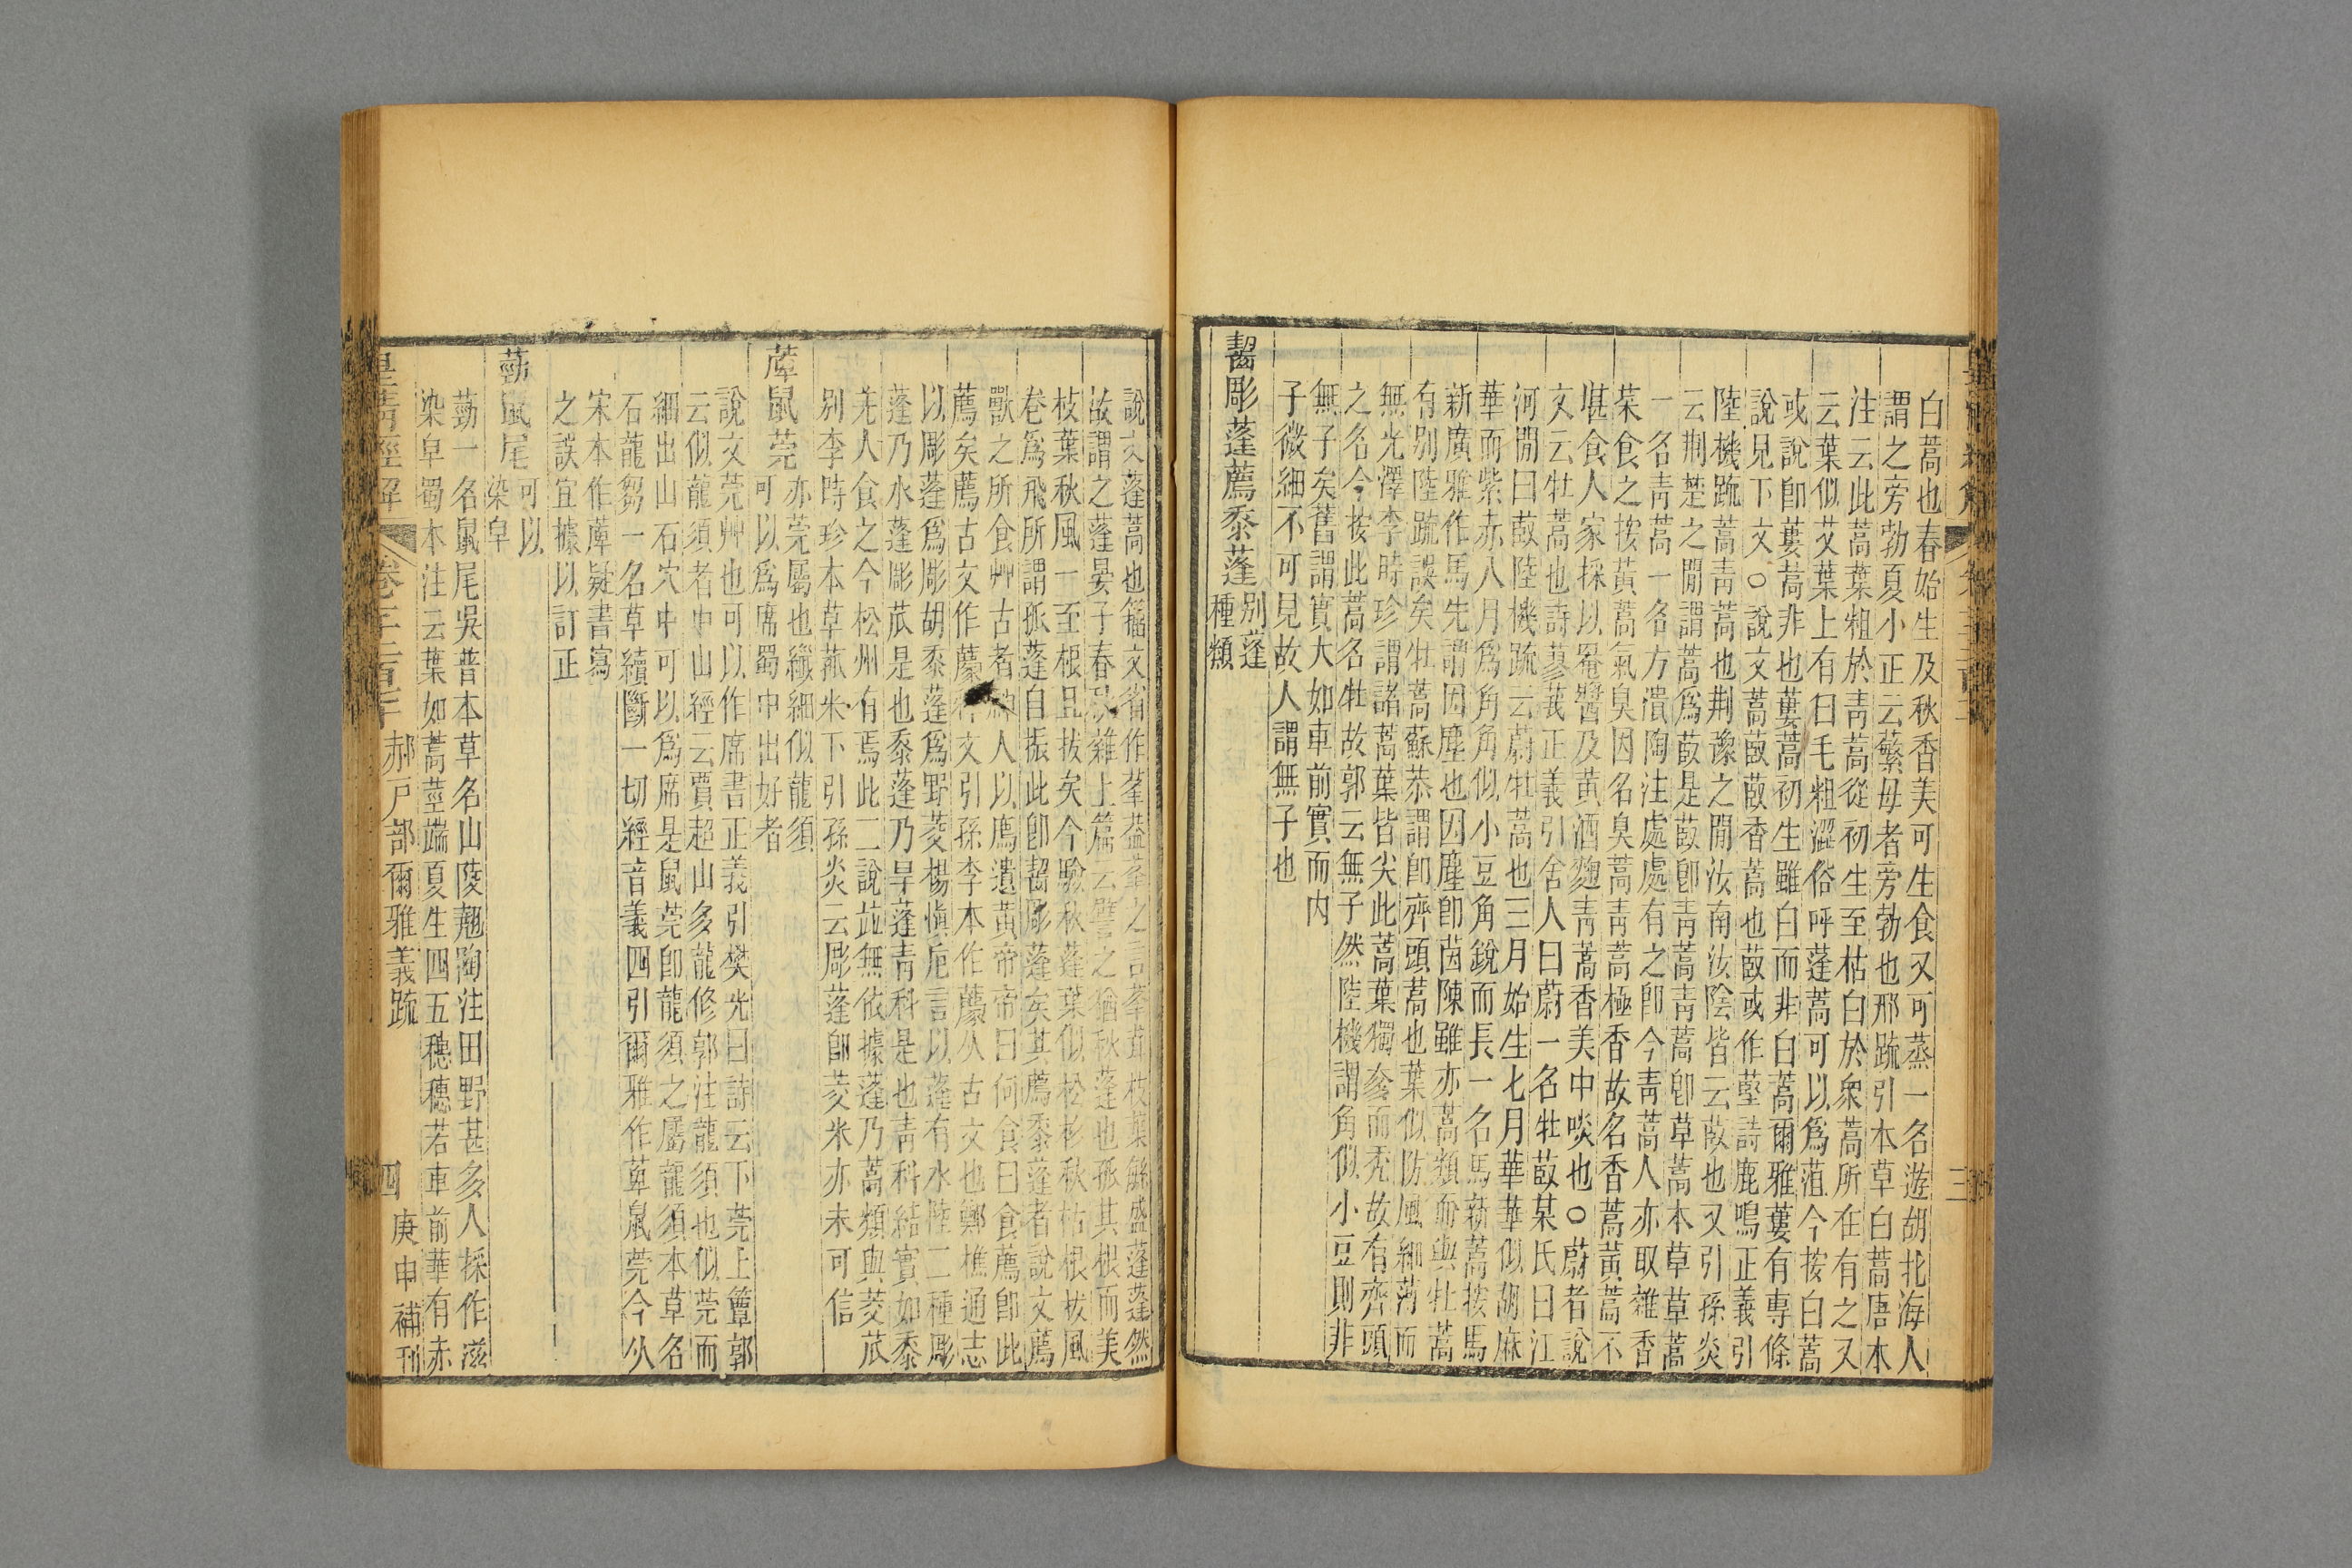 白蒿也春始生及秋香美可生食又可蒸一名遊胡北海人
謂之旁勃夏小正云蘩母者旁勃也邢疏引本草白蒿唐本
注云此蒿葉粗於靑蒿從初生至枯白於衆蒿所在有之又
云葉似艾葉上有白毛粗澀俗呼蓬蒿可以爲菹今按白蒿
或說卽蔞蒿非也蔞蒿初生雖白而非白蒿爾雅蔞有專條
說見下文○說文蒿菣菣香蒿也菣或作𦸅詩鹿鳴正義引
陸機疏蒿靑蒿也荆豫之閒汝南汝陰皆云菣也又引孫炎
云荆楚之閒謂蒿爲菣是菣卽靑蒿靑蒿卽草蒿本草草蒿
一名靑蒿一名方潰陶注處處有之卽今靑蒿人亦取雜香
菜食之按黃蒿氣臭因名臭蒿靑蒿極香故名香蒿黃蒿不
堪食人家採以罨醬及黃酒麴靑蒿香美中啖也○蔚者說
文云牡蒿也詩蓼莪正義引舍人曰蔚一名牡菣某氏曰江
河閒曰菣陸機疏云蔚牡蒿也三月始生七月華華似胡麻
華而紫赤八月爲角角似小豆角銳而長一名馬新蒿按馬
新廣雅作馬先謂因塵也因塵卽茵陳雖亦蒿類而與牡蒿
有別陸疏誤矣牡蒿蘇恭謂卽齊頭蒿也葉似防風細薄而
無光澤李時珍謂諸蒿葉皆尖此蒿葉獨奓而禿故有齊頭
之名今按此蒿名牡故郭云無子然陸機謂角似小豆則非
無子矣舊謂實大如車前實而内
子微細不可見故人謂無子也
齧彫蓬薦黍蓬
別蓬
種類
說文蓬蒿也籀文省作莑葢莑之言莑茸枝葉緐盛蓬蓬然
故謂之蓬晏子春秋雜上篇云譬之猶秋蓬也孤其根而美
枝葉秋風一至根且拔矣今驗秋蓬葉似松杉秋枯根拔風
卷爲飛所謂孤蓬自振此卽齧彫蓬矣其薦黍蓬者說文薦
獸之所食艸古者神人以廌遺黃帝帝曰何食曰食薦卽此
薦矣薦古文作藨釋文引孫李本作藨从古文也鄭樵通志
以彫蓬爲彫胡黍蓬爲野茭楊愼卮言以蓬有水陸二種彫
蓬乃水蓬彫苽是也黍蓬乃旱蓬靑科是也靑科結實如黍
羌人食之今松州有焉此二說竝無依據蓬乃蒿類與茭苽
別李時珍本草菰米下引孫炎云彫蓬卽茭米亦未可信
䕠鼠莞
亦莞屬也纖細似龍須
可以爲席蜀中出好者
說文莞艸也可以作席書正義引樊光曰詩云下莞上簟郭
云似龍須者中山經云賈超山多龍修郭注龍須也似莞而
細出山石穴中可以爲席是鼠莞卽龍須之屬龍須本草名
石龍芻一名草續斷一切經音義四引爾雅作萆鼠莞今从
宋本作䕠疑書寫
之誤宜據以訂正
葝鼠尾
可以
染皁
葝一名鼠尾吳普本草名山陵翹陶注田野甚多人採作滋
染皁蜀本注云葉如蒿莖端夏生四五穗穗若車前華有赤
皇淸經解 卷千二百 郝戸部爾雅義疏 四 庚申補刊